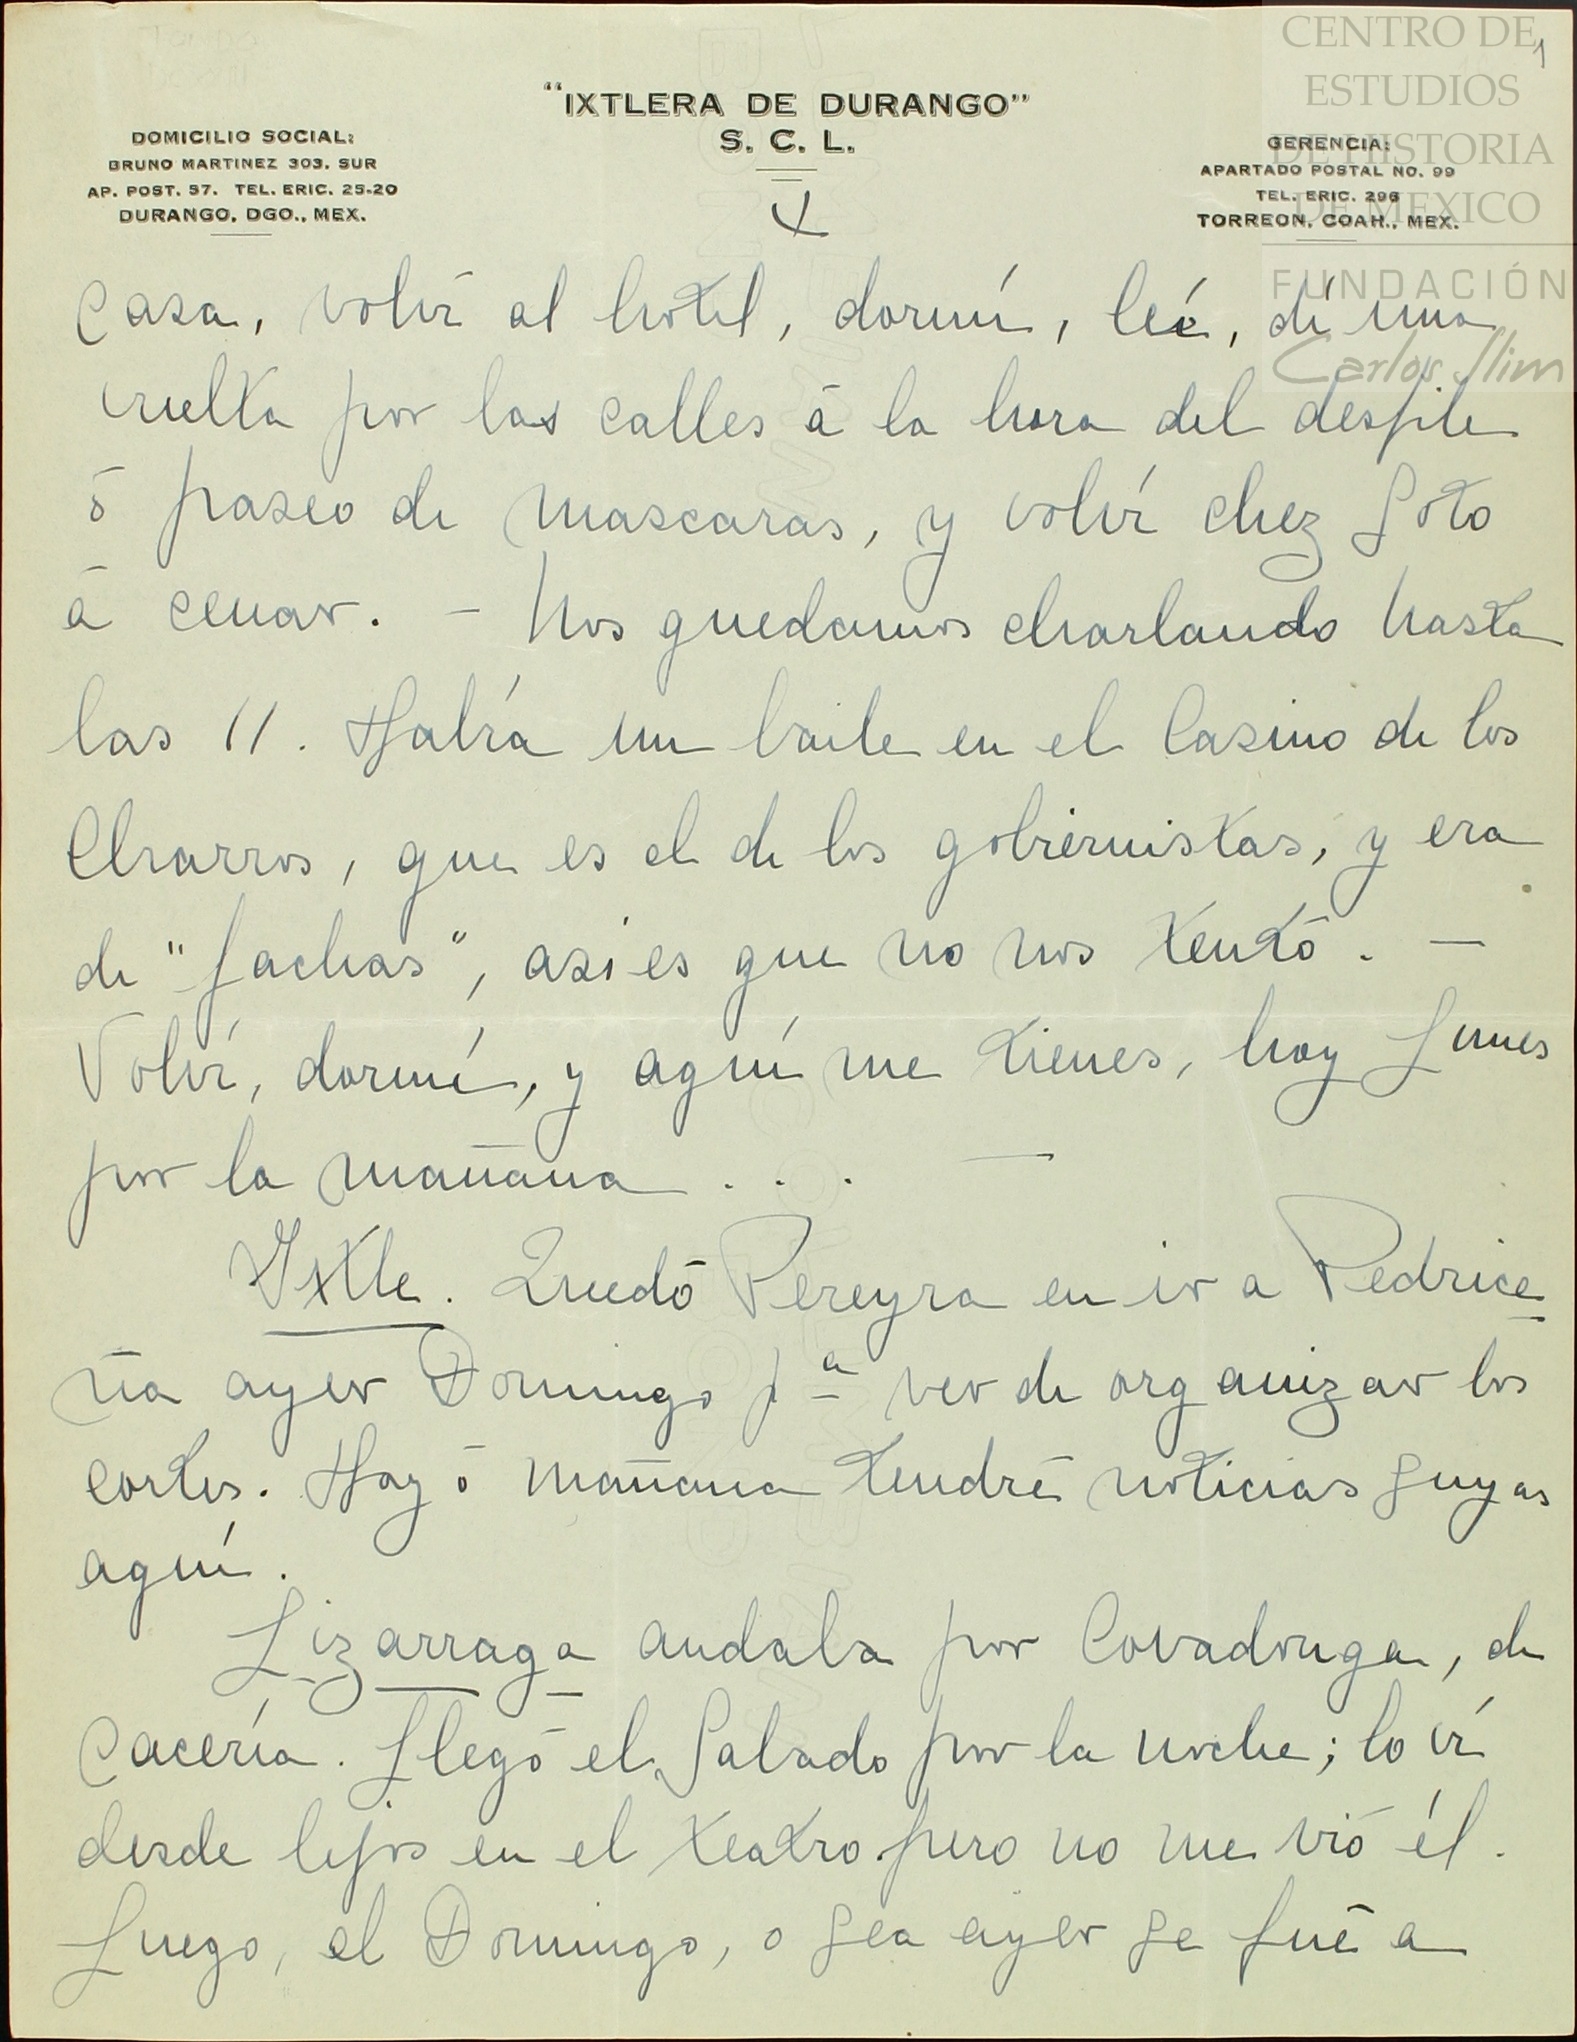 CENTRO DE
ESTUDIOS
DE HISTORIA
DE MEXICO
FUNDACIÓN
Carlos Slim
1
"IXTLERA DE DURANGO"
S. C. L.
DOMICILIO SOCIAL:
BRUNO MARTINEZ 303. SUR
AP. POST. 57. TEL. ERIC. 25-20
DURANGO, DGO., MEX.
GERENCIA:
APARTADO POSTAL NO. 99
TEL. ERIC. 296
TORREON, COAH., MEX.
casa, volví al hotel, dormí, leí, dí una
vuelta por las calles á la hora del desfile
ó paseo de mascaras, y volví chez Soto
á cenar. — Nos quedamos charlando hasta
las 11. Había un baile en el Casino de los
Charros, que es el de los gobiernistas, y era
de "fachas", asi es que no nos tentó. —
Volví, dormí, y aquí me tienes, hoy Lunes
por la mañana . . . —
Ixtle. Quedó Pereyra en ir a Pedrice
ña ayer Domingo pa ver de organizar los
cortes. Hoy ó mañana tendré noticias suyas
aquí.
Lizarraga andaba por Covadonga, de
cacería. Llegó el Sabado por la noche; lo ví
desde lejos en el teatro pero no me vió él.
Luego, el Domingo, o sea ayer se fué a